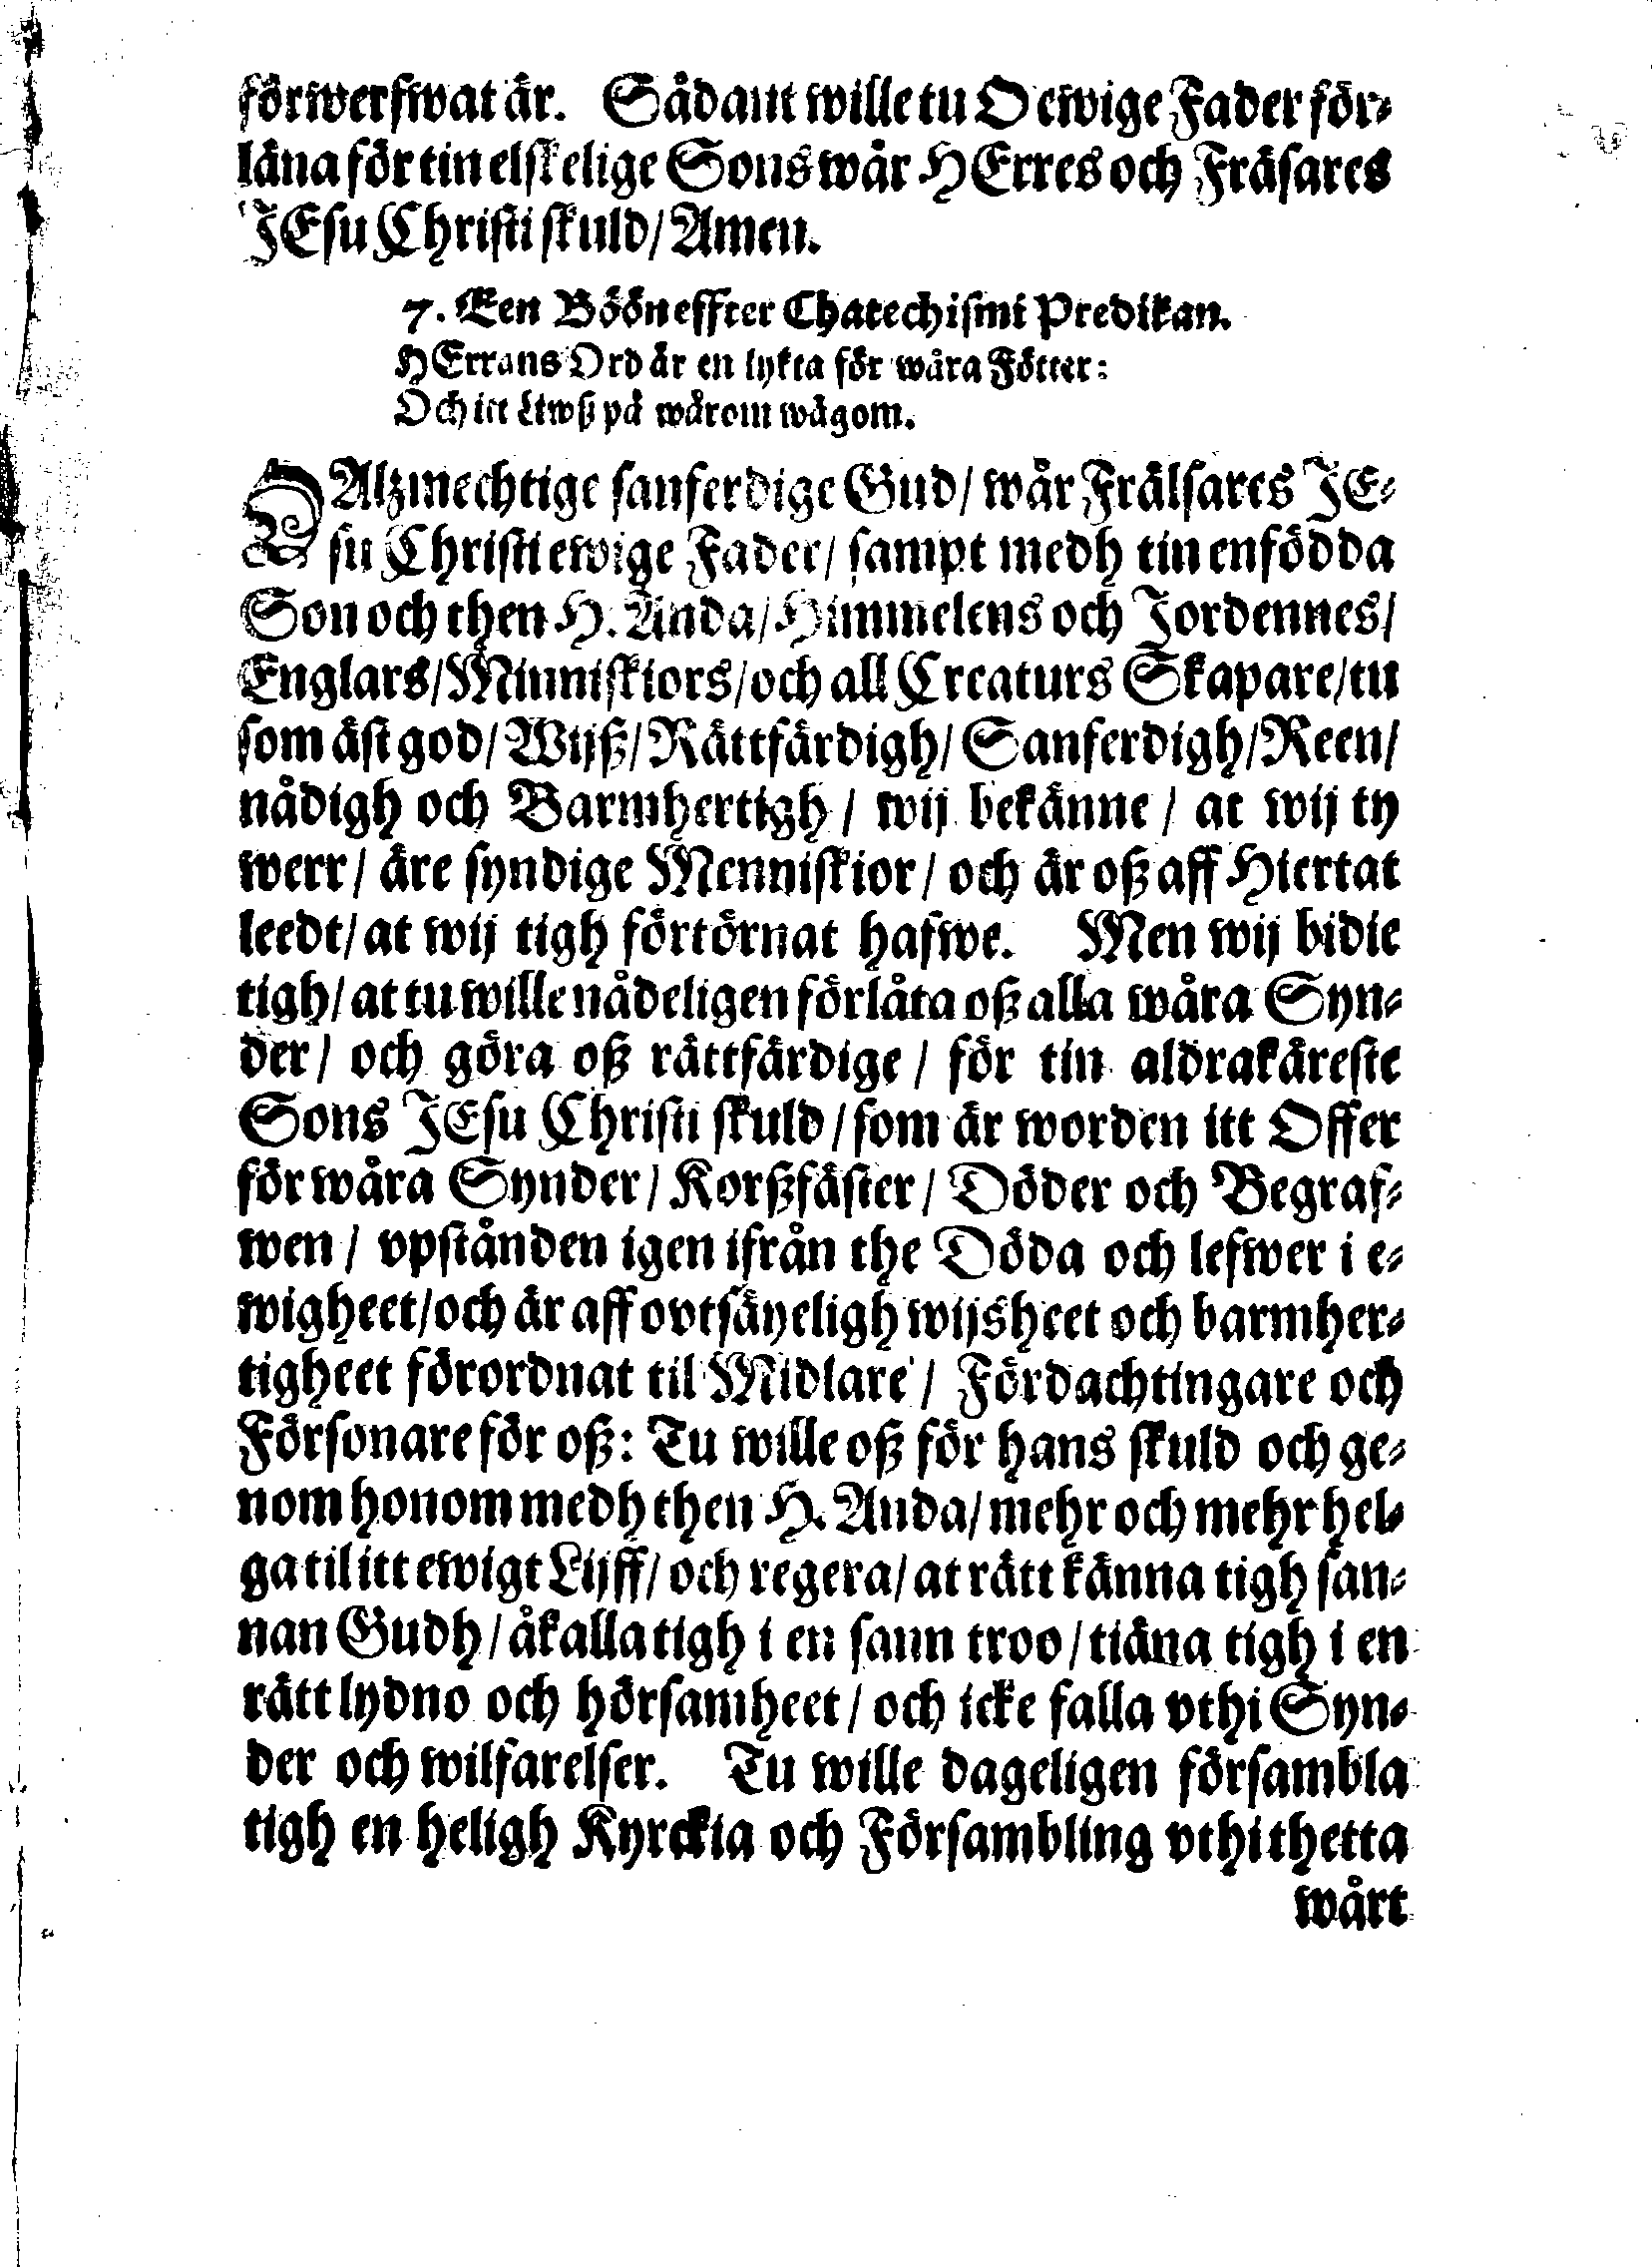 förwerfwat är. Sådant wille tu O ewige Fader för-
läna för tin elskelige Sons wår HErres och Fräsares
JEsu Christi skuld/ Amen.
7. Een Böön effter Chatechismi Predikan.
HErrans Ord är en lykta för wåra Fötter:
Och itt Liwß på wårom wägom.
O Alzmechtige sanferdige Gud/ wår Frälsares JE-
su Christi ewige Fader/ sampt medh tin enfödda
Son och then H. Anda/ Himmelens och Jordennes/
Englars/ Minniskiors/ och all Creaturs Skapare/ tu
som äst god/ Wijß/ Rättfärdigh/ Sanferdigh/ Reen/
nådigh och Barmhertigh/ wij bekänne/ at wij ty
werr/ äre syndige Menniskior/ och är oß aff Hiertat
leedt/ at wij tigh förtörnat hafwe. Men wij bidie
tigh/ at tu wille nådeligen förlåta oß alla wåra Syn-
der/ och göra oß rättfärdige/ för tin aldrakäreste
Sons JEsu Christi skuld/ som är worden itt Offer
för wåra Synder/ Korßfäster/ Döder och Begraf-
wen/ vpstånden igen ifrån the Döda och lefwer i e-
wigheet/ och är aff ovtsäyeligh wijsheet och barmher-
tigheet förordnat til Midlare/ Fördachtingare och
Försonare för oß: Tu wille oß för hans skuld och ge-
nom honom medh then H. Anda/ mehr och mehr hel-
ga til itt ewigt Lijff/ och regera/ at rätt känna tigh san-
nan Gudh/ åkalla tigh i en sann troo/ tiäna tigh i en
rätt lydno och hörsamheet/ och icke falla vthi Syn-
der och wilfarelser. Tu wille dageligen försambla
tigh en heligh Kyrckia och Försambling vthi thetta
wårt